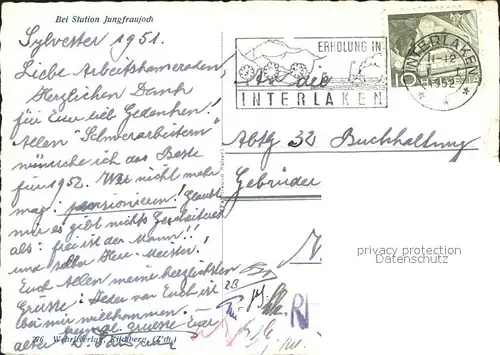 Bei Station Jungfraujoch
Sylvester 1951.
Liebe Arbeitskameraden,
Herzlichen Dank
für Euer lieb Gedenken!
Allen "Schwerarbeitern"
wünsche ich das Beste
für 1952. Wer nicht mehr
mag: pensionieren! Glaubt
mir es gibt nichts Gescheiteres
als: frei ist der Mann!!
und selber Herr Meister.
Euch Allen meine herzlichsten
Grüsse! Jeder von Euch ist
bei mir willkommen.
Euer
alter
ERHOLUNG IN
INTERLAKEN
INTERLAKEN
11-12
1952
10
An die
Abtg 32 Buchhaltung
Gebrüder
privacy protection
Wehrliverlag, Kilchberg (Zch.)